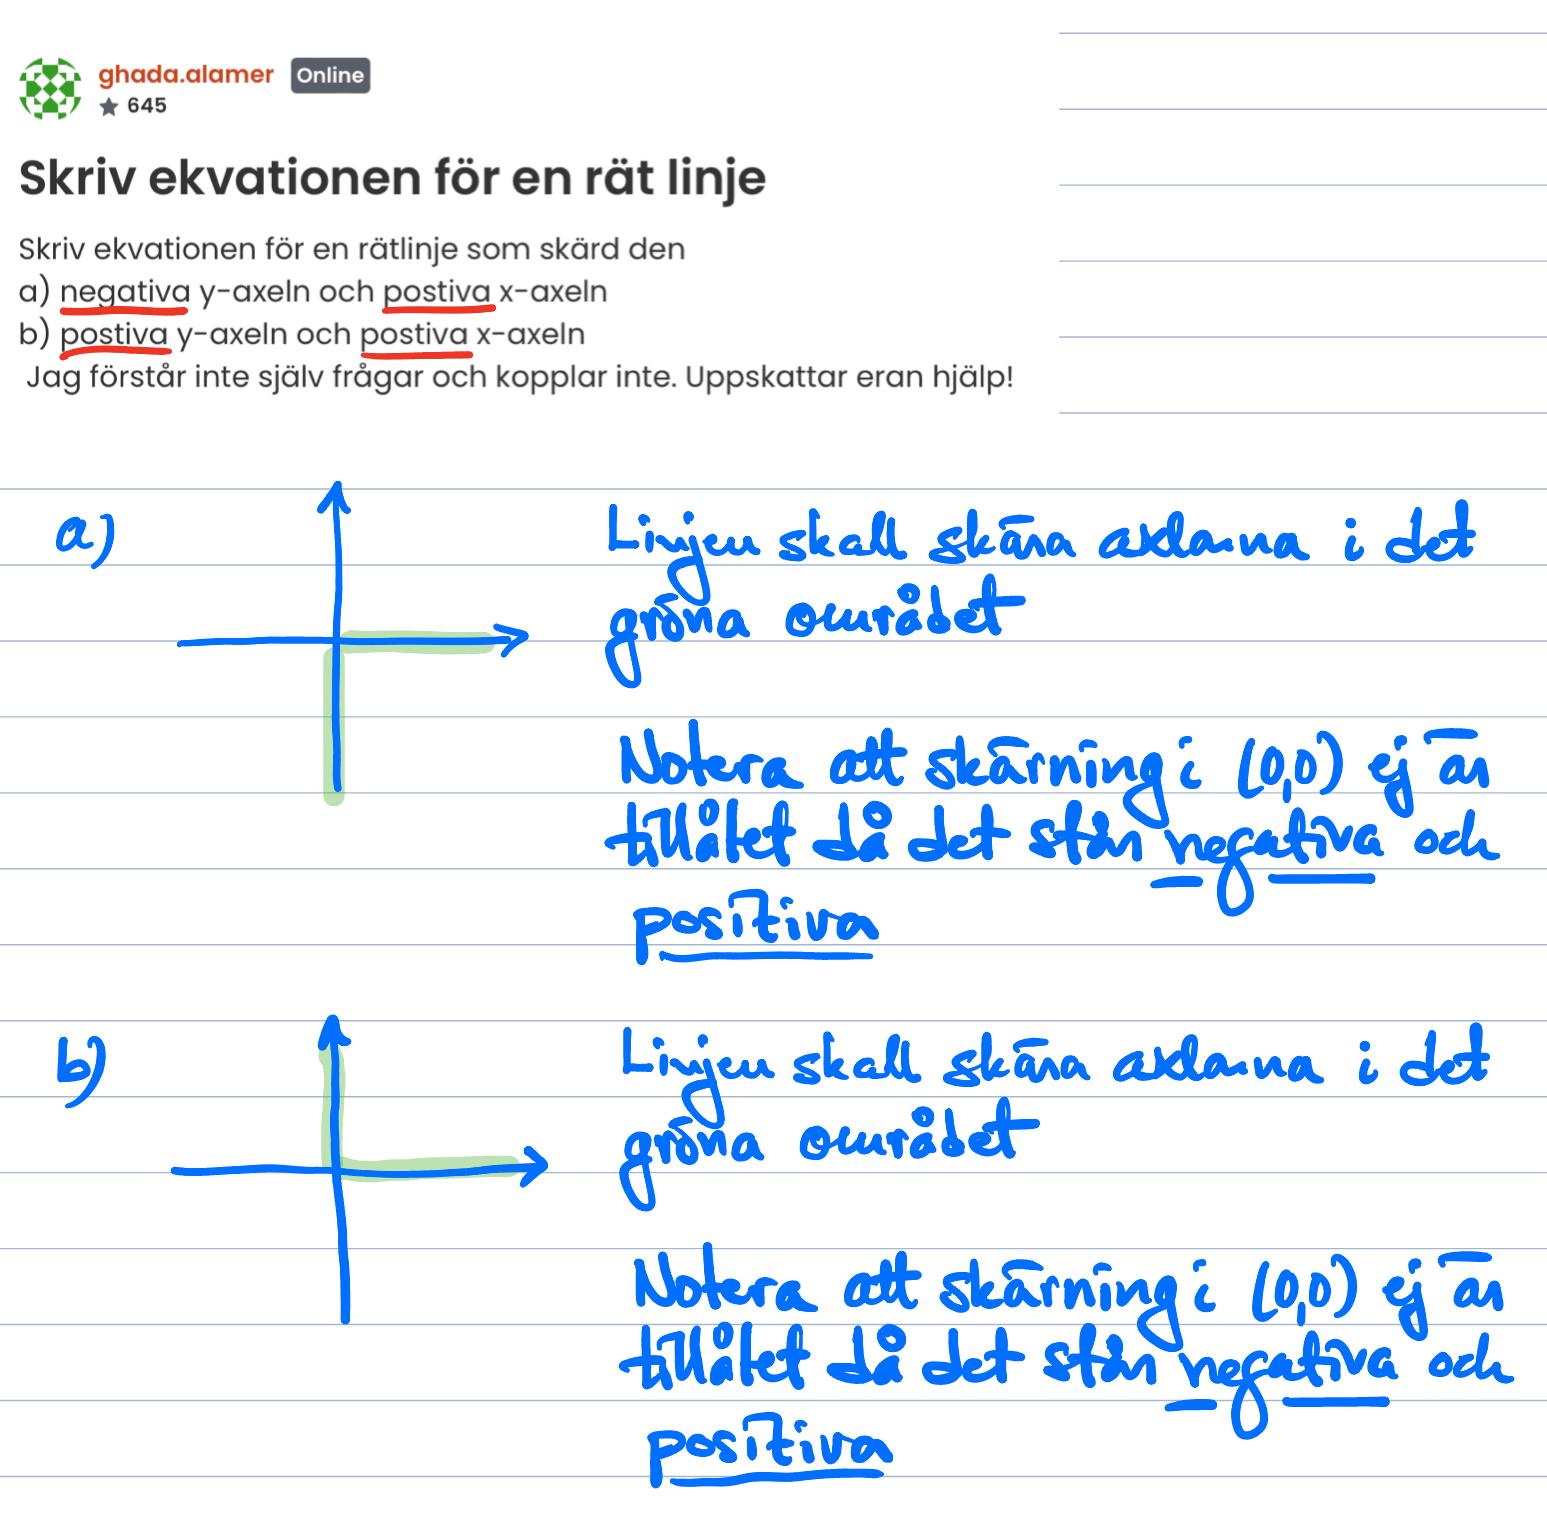 ghada.alamer Online
★ 645
Skriv ekvationen för en rät linje
Skriv ekvationen för en rätlinje som skärd den
a) negativa y-axeln och postiva x-axeln
b) postiva y-axeln och postiva x-axeln
Jag förstår inte själv frågar och kopplar inte. Uppskattar eran hjälp!
a)
Linjen skall skära axlarna i det
gröna området
Notera att skärning i (0,0) ej är
tillåtet då det står negativa och
positiva
b)
Linjen skall skära axlarna i det
gröna området
Notera att skärning i (0,0) ej är
tillåtet då det står negativa och
positiva